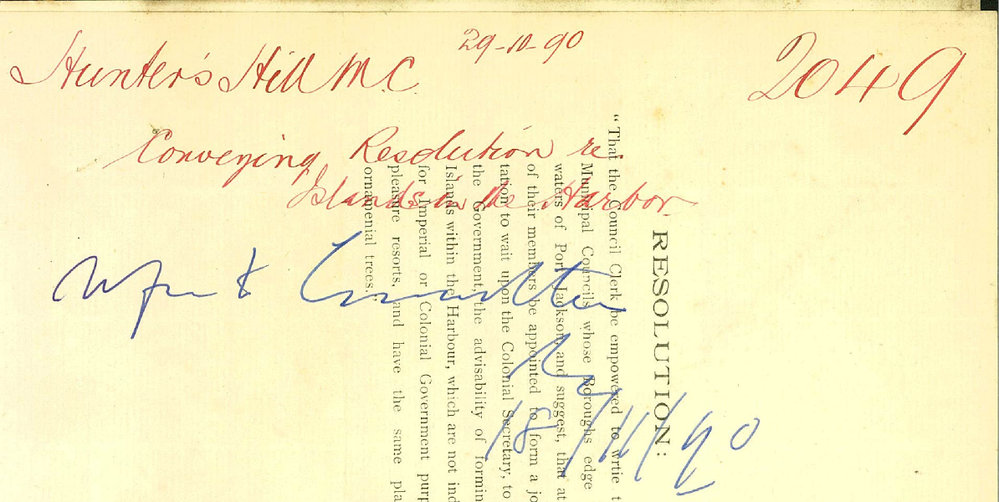 29-10-90
Hunter's Hill M.C. 2049
Conveying Resolution re.
Islands in the Harbor
Refer to Committee
18/11/90
RESOLUTION:
"That the Council Clerk be empowered to wrtie t
Municipal Councils whose Boroughs edge
waters of Port Jackson, and suggest, that at
of their members be appointed to form a jo
tation to wait upon the Colonial Secretary, to
the Government, the advisability of formin
Islands within the Harbour, which are not ind
for Imperial or Colonial Government purp
pleasure resorts, and have the same pla
ornamental trees.